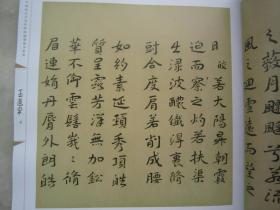 之蔽月飄飖若流
風之迴雪遠而
日皎若太陽昇朝霞
迫而察之灼若扶渠
出淥波醲纖得衷脩
短合度肩若削成腰
如約素延頸秀項皓
質呈露芳澤無加鉛
華不御雲髻峩峩脩
眉連娟丹脣外朗皓